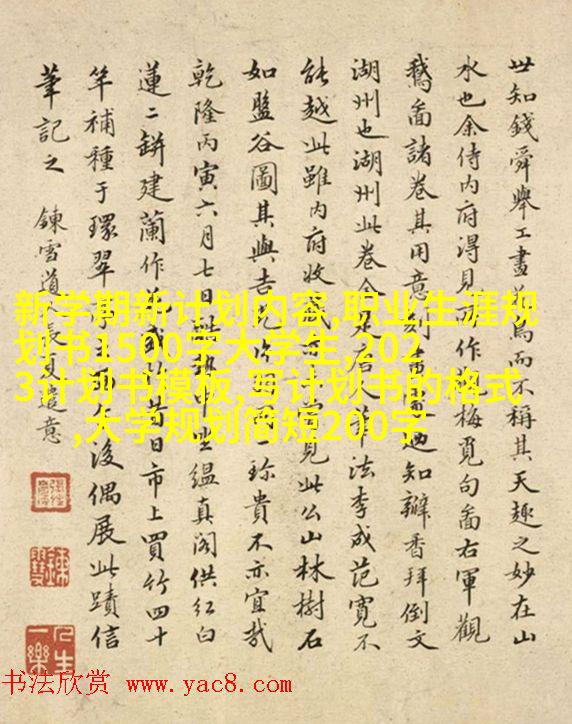 世知錢舜舉工畫鳥而不稱其天趣之妙在山
水也余侍内府得見所作梅覓句圖右軍觀
鵝圖諸卷其用意刻畫知瓣香拜倒文
湖州也湖州此卷唐人法李成范寬不
能越此雖内府收見此公山林樹石
如盤谷圖其與吉珍貴不亦宜哉
乾隆丙寅六月七日坐緼真閣供紅白
蓮二缾建蘭作日市上買竹四十
竿補種于環翠後偶展此蹟信
筆記之 鍊雪道遣意
新学期新计划内容,职业生涯规
划书1500字大学生,202
3计划书模板,写计划书的格式
,大学规划简短200字
人生一樂
书法欣赏 www.yac8.com